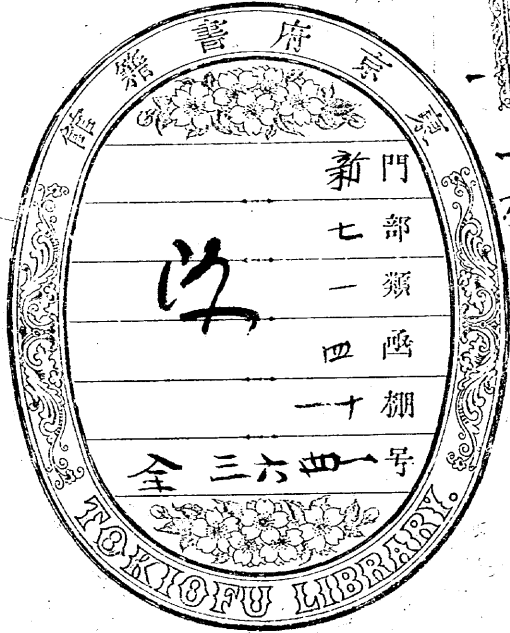 東京府書籍館
門 新
部 七
類 一
函 四
棚 十一
号 一四六三 全
TOKIOFU LIBRARY.